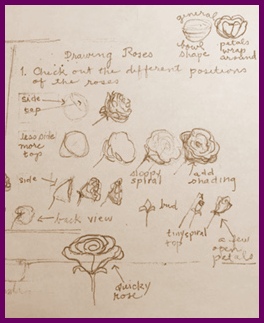 general
bowl
shape
petals
wrap
around
Drawing Roses
1. Check out the different positions
of the roses
side
top
less side
more
top
side
sloppy
spiral
add
shading
back view
bud
tiny spiral
top
a few
open
petals
quicky
rose